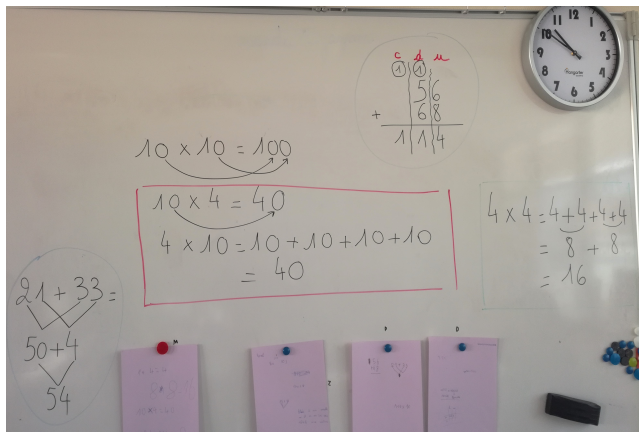 c d u
1 1
56
+ 68
114
10 × 10 = 100
10 × 4 = 40
4 × 10 = 10 + 10 + 10 + 10
= 40
4 × 4 = 4 + 4 + 4 + 4
= 8 + 8
= 16
21 + 33 =
50 + 4
54
12
11 1
10 2
9 3
8 4
7 5
6